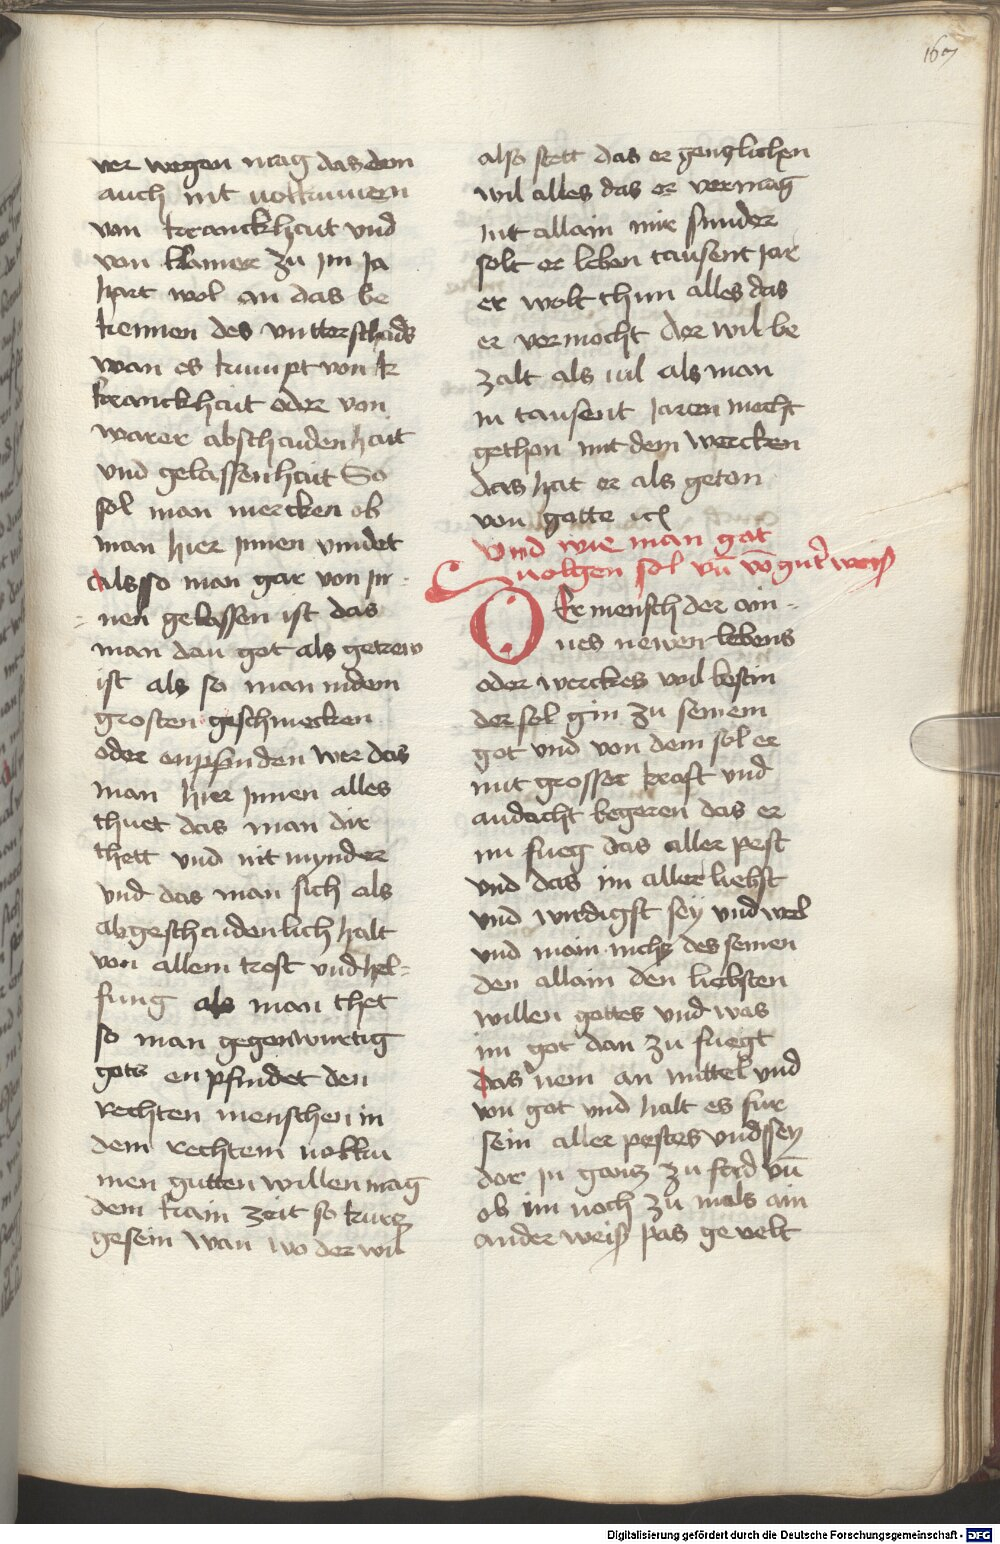 167
ver wegen mag das dem
auch nit volkumen
von kranckhait vnd
von klainer zu im Ja
hort wol an das be
kennen des vntterschaids
wan es kumpt von k
kranckhait oder von
warer abschaidenhait
vnd gelassenhait So
sol man mercken ob
man hier Innen vindet
Also so man gar von In
nen gelassen ist das
man dan got als getrew
ist als so man in dem
grosten geschmecken
oder enpfinden wer das
man hier Innen alles
thuet das man dir
thett vnd nit mynder
vnd das man sich als
abgeschaidenlich halt
von allem trost vnd hel=
fung als man thet
so man gegenwurtig
gots enpfindet den
Rechten menschen in
dem rechtem volku
men gutten willen mag
dem kain zeit so kurcz
gesein wan wo der wil
also stett das er genglichen
wil alles das er vermag
nit allain mir sunder
solt er leben tausent Jar
er wolt thun alles das
er vermocht der wil be
zalt als vil als man
in tausent Jaren mocht
gethon mit dem wercken
das hat er als geton
von gotte etc
Und wie man got
uolgen sol vn̄ vō gut̓ weiß
Der mensch der ain=
nes newen lebens
oder werckes wil bestin
der sol gin zu seinem
got vnd von dem sol er
mit grosser kraft vnd
andacht begeren das er
im fueg das aller pest
vnd das im aller liebst
vnd wirdigst sey vnd wel
vnd main nichz des seinen
den allain den liebsten
willen gottes vnd was
im got dan zu fuegt
das nem an mittel vnd
von got vnd halt es fur
sein aller pestes vnd sey
dor in gancz zu frid vn̄
ob im noch zu mals ain
ander weiß pas gevelt
Digitalisierung gefördert durch die Deutsche Forschungsgemeinschaft - DFG